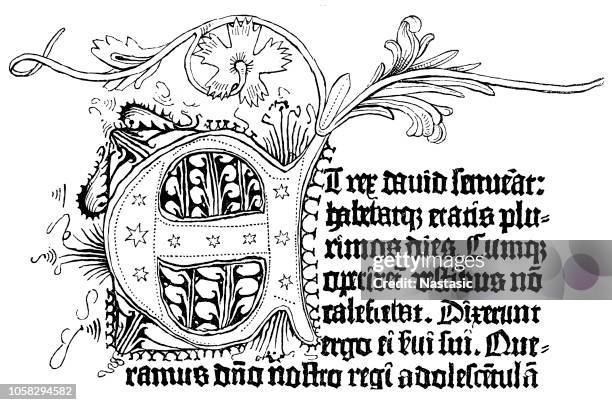 ET rex david senuerat:
habebatqꝫ etatis plu-
rimos dies. Cumqꝫ
vestibus nō
calefiebat. Dixerunt
ergo ei sui. Que-
ramus dño nostro regi adolescētulā
gettyimages
Credit: Nastasic
1058294582